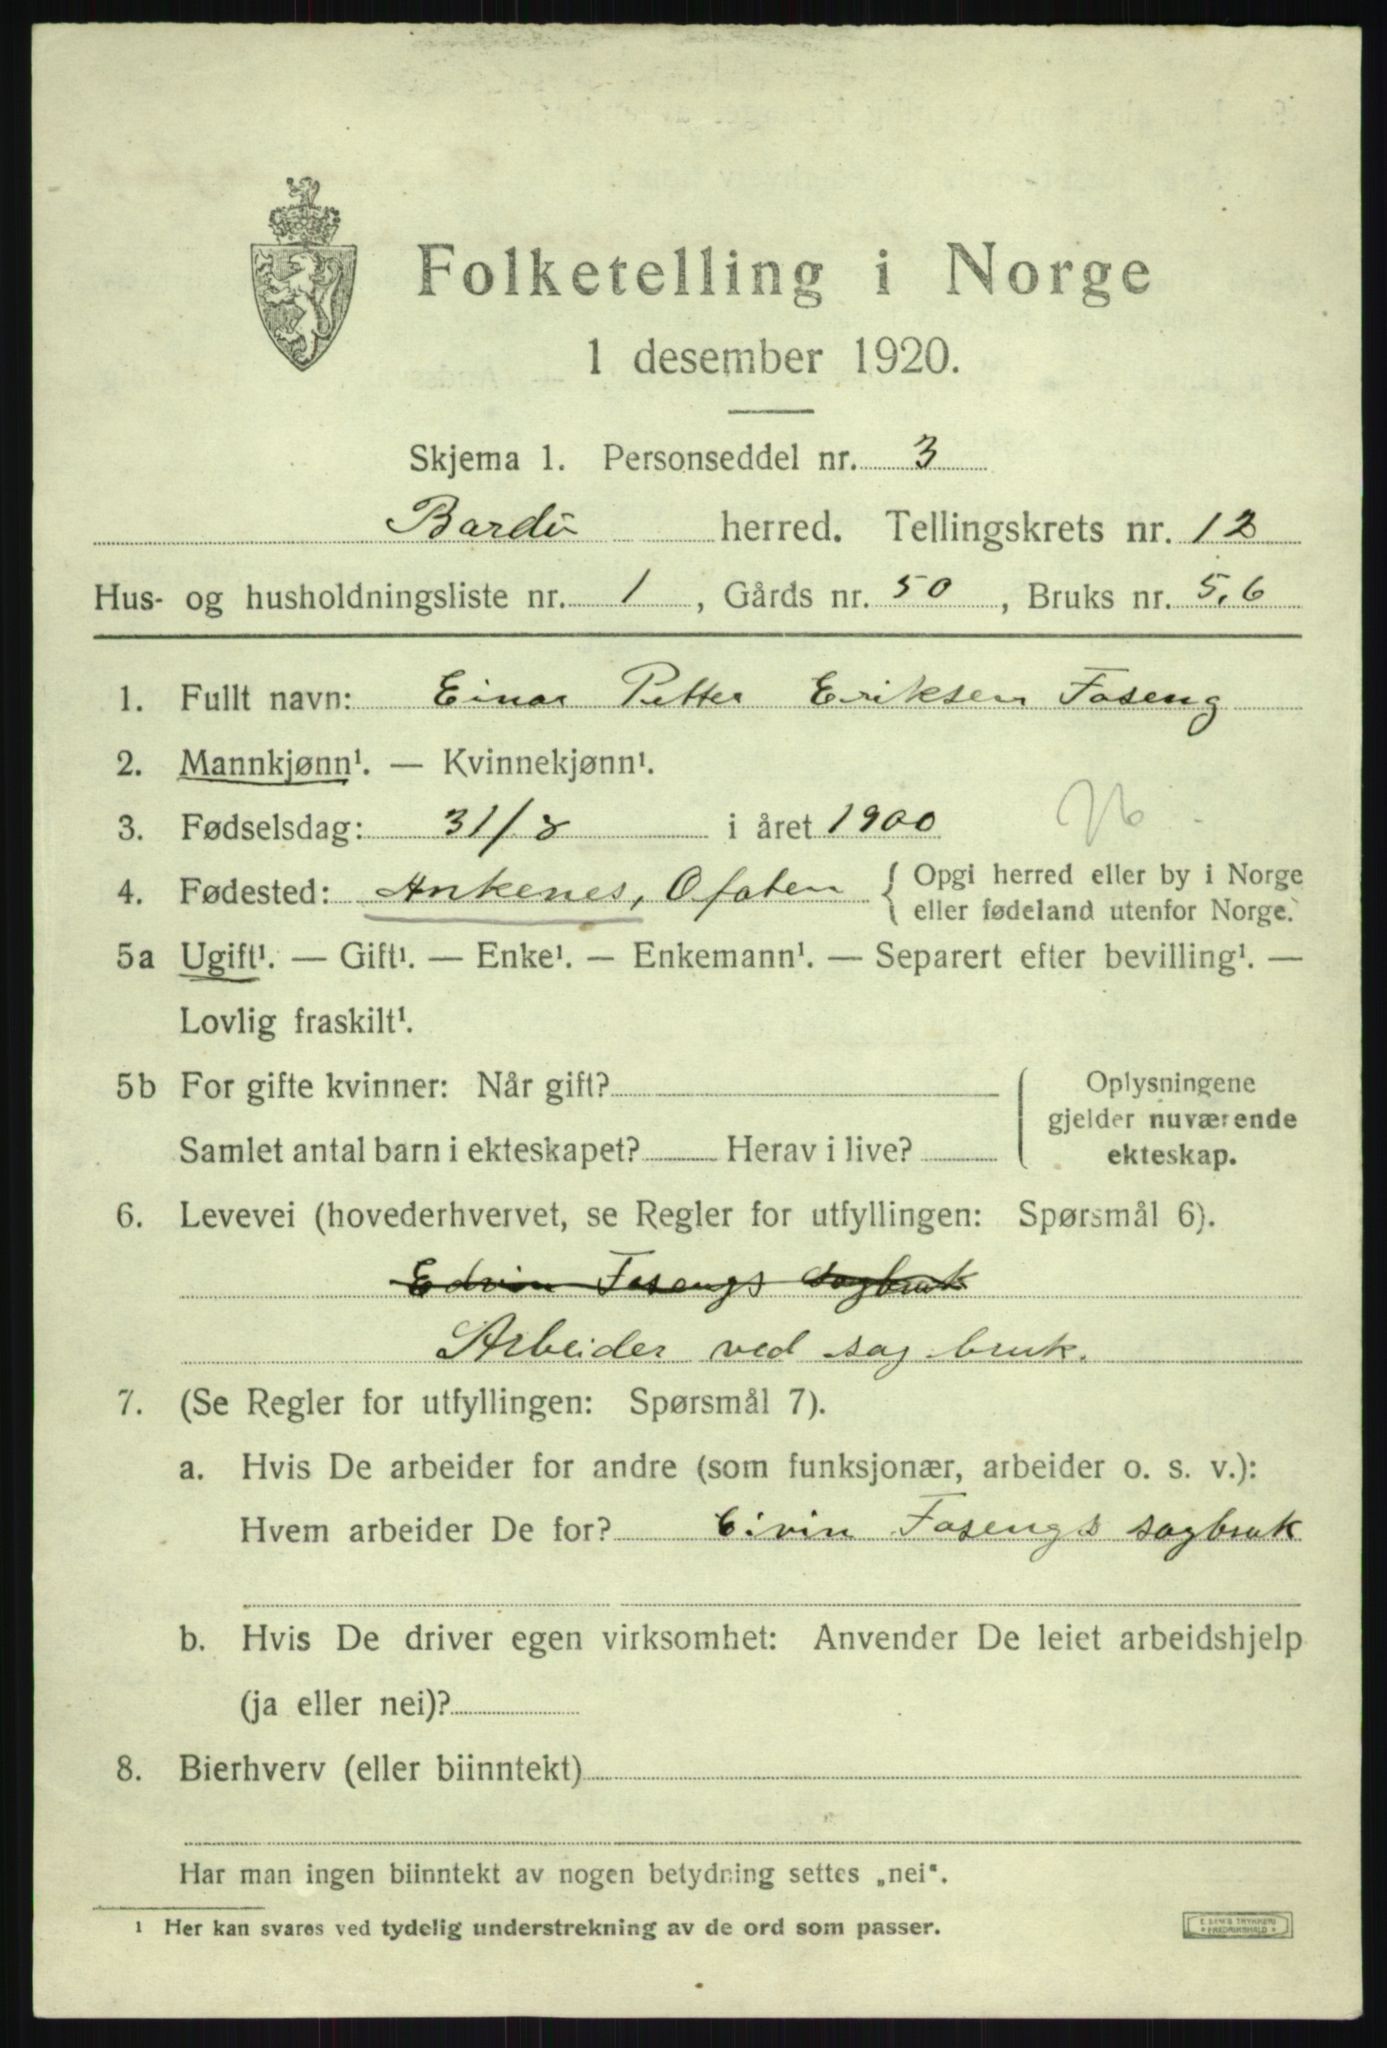 Folketelling i Norge
1 desember 1920.
Skjema 1. Personseddel nr. 3
Bardu herred. Tellingskrets nr. 12
Hus- og husholdningsliste nr. 1, Gårds nr. 50, Bruks nr. 5,6
1. Fullt navn: Einar Petter Eriksen Foseng
2. Mannkjønn¹. — Kvinnekjønn¹.
3. Fødselsdag: 31/8 i året 1900
4. Fødested: Ankenes, Ofoten { Opgi herred eller by i Norge
eller fødeland utenfor Norge.
5a Ugift¹. — Gift¹. — Enke¹. — Enkemann¹. — Separert efter bevilling¹. —
Lovlig fraskilt¹.
5b For gifte kvinner: Når gift? Oplysningene
gjelder nuværende
Samlet antal barn i ekteskapet? Herav i live? ekteskap.
6. Levevei (hovederhvervet, se Regler for utfyllingen: Spørsmål 6).
Edvin Fosengs sagbruk
Arbeider ved sag bruk.
7. (Se Regler for utfyllingen: Spørsmål 7).
a. Hvis De arbeider for andre (som funksjonær, arbeider o. s. v.):
Hvem arbeider De for? Eivin Fosengs sagbruk
b. Hvis De driver egen virksomhet: Anvender De leiet arbeidshjelp
(ja eller nei)?
8. Bierhverv (eller biinntekt)
Har man ingen biinntekt av nogen betydning settes „nei“.
¹ Her kan svares ved tydelig understrekning av de ord som passer.
E. SEMS TRYKKERI
FREDRIKSHALD